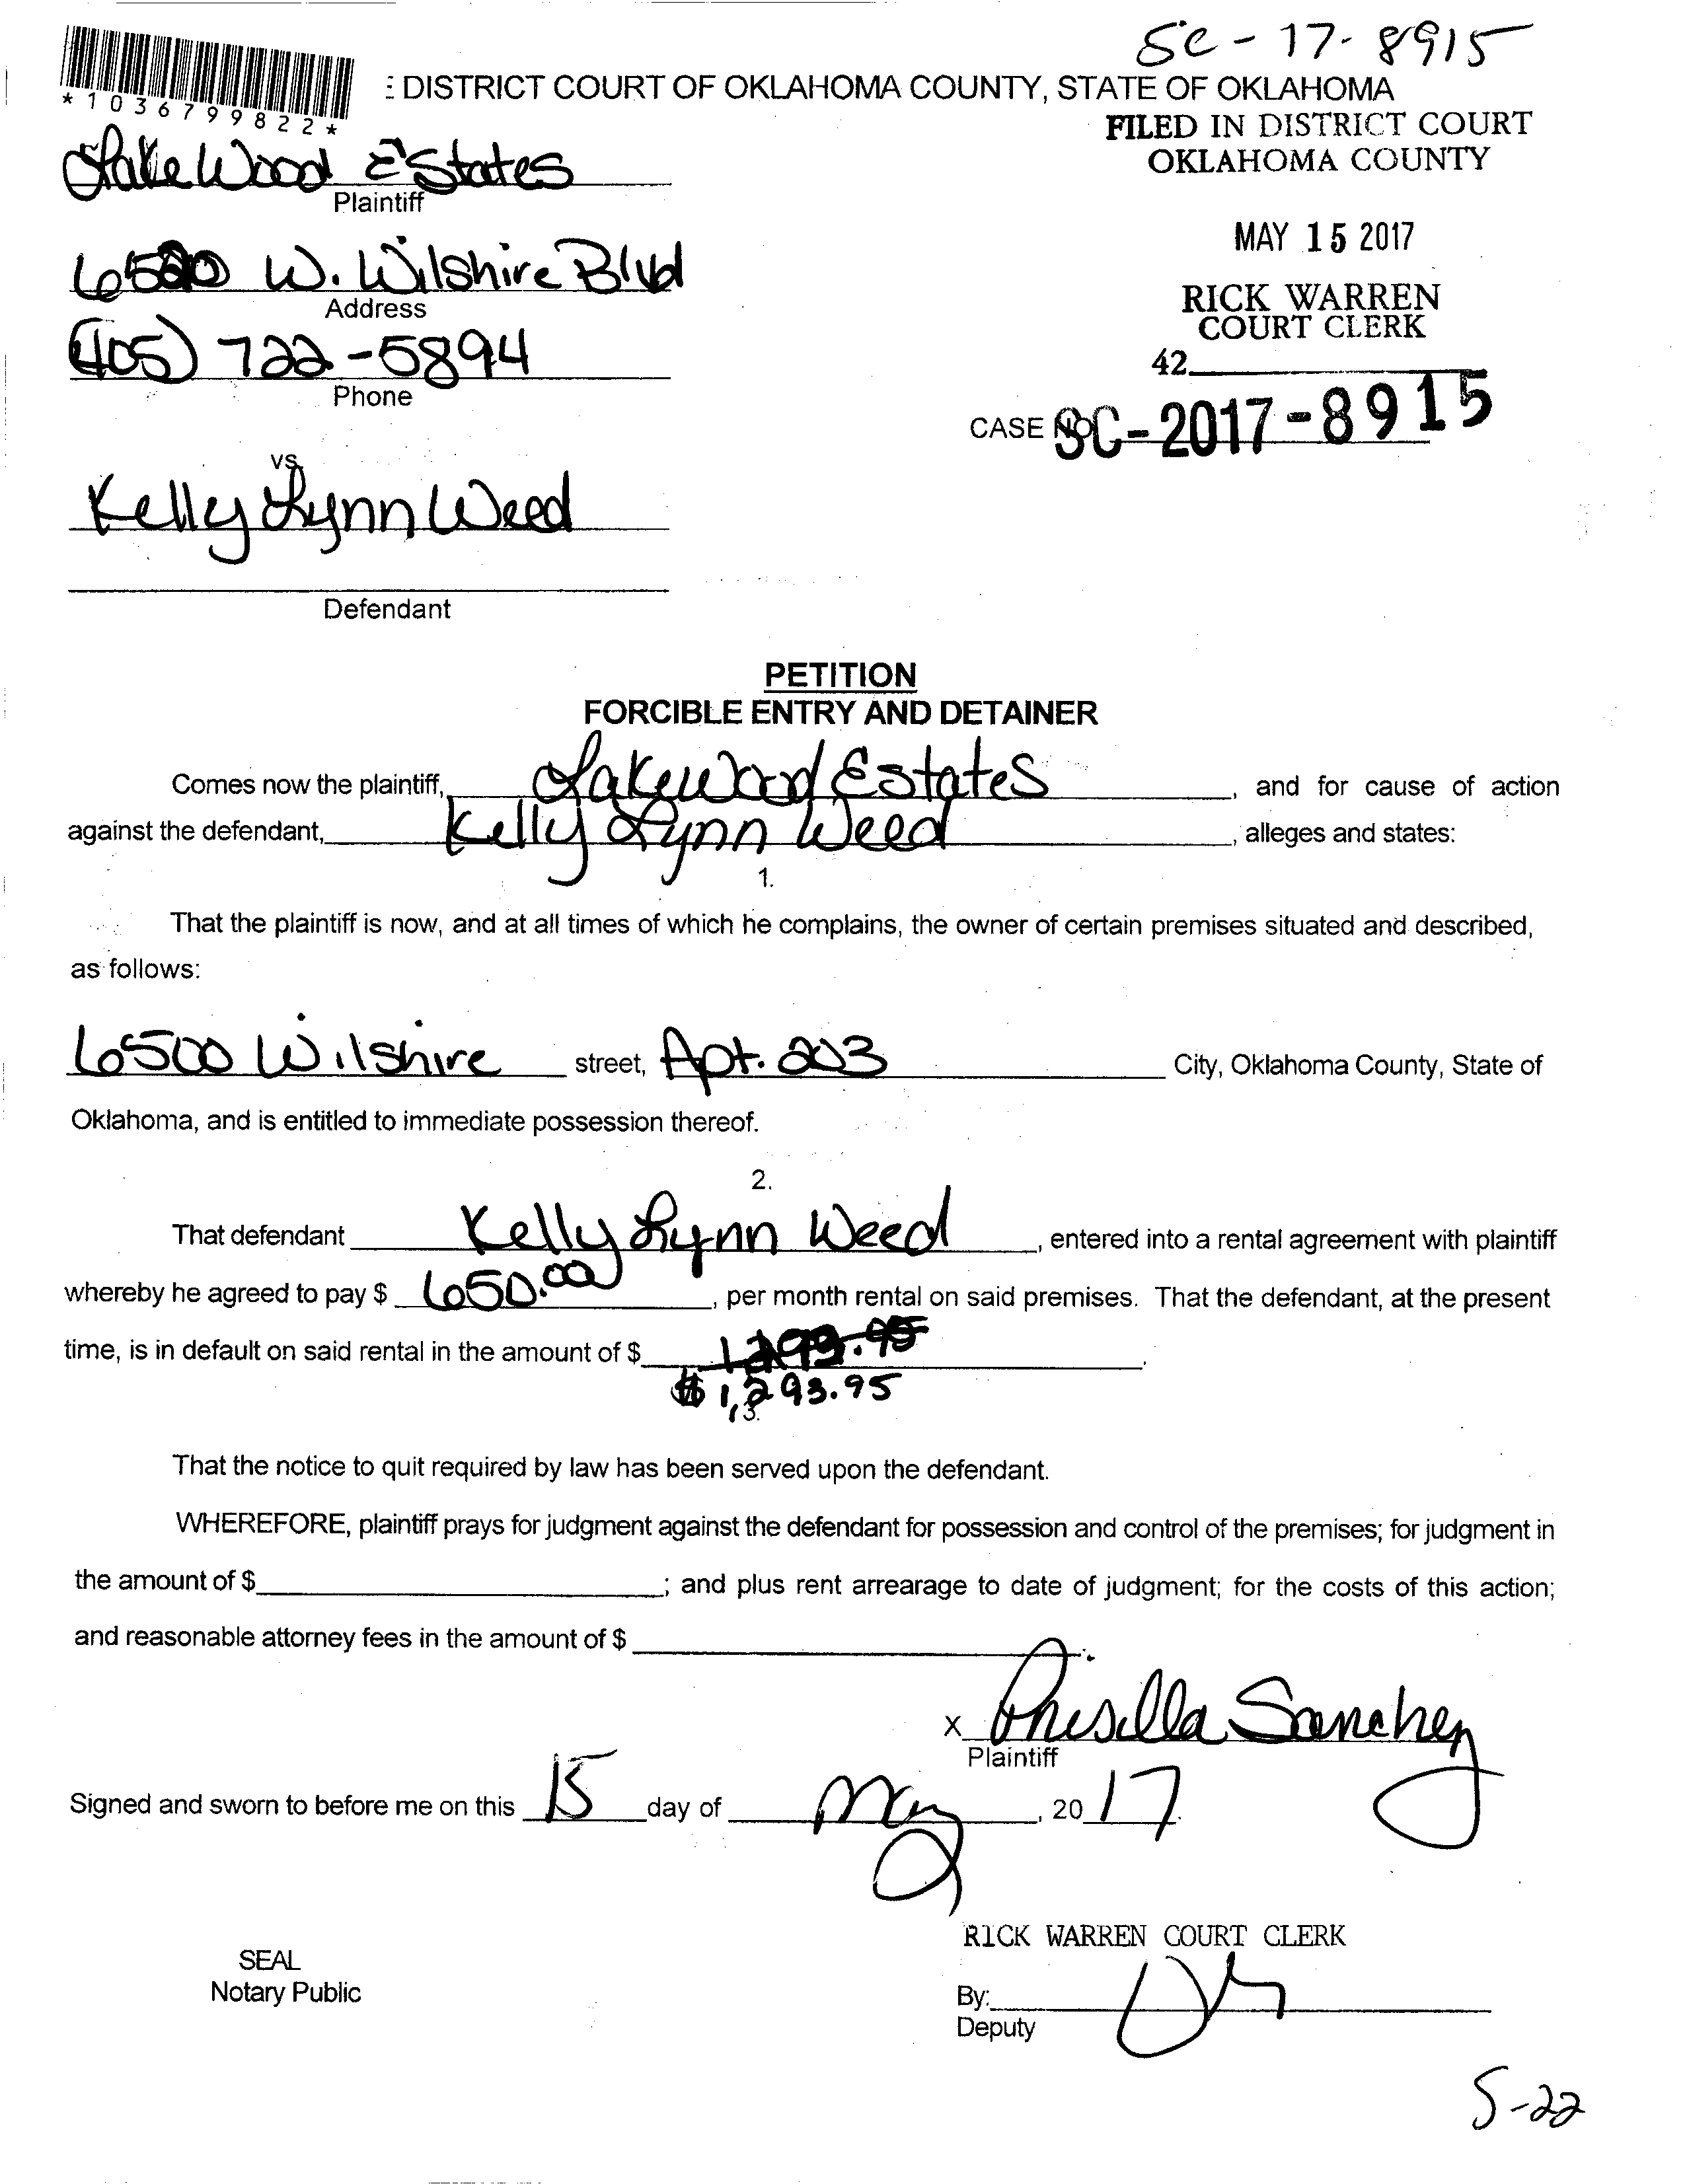 SC-17-8915
*1036799822*
: DISTRICT COURT OF OKLAHOMA COUNTY, STATE OF OKLAHOMA
FILED IN DISTRICT COURT
OKLAHOMA COUNTY
LakeWood EStates
Plaintiff
MAY 15 2017
W. Wilshire Blvd
Address
RICK WARREN
COURT CLERK
(405) 722-5894
Phone
42
CASE NO. SC-2017-8915
vs.
Kelly Lynn Weed
Defendant
PETITION
FORCIBLE ENTRY AND DETAINER
Comes now the plaintiff, Lakewood Estates, and for cause of action
against the defendant, Kelly Lynn Weed, alleges and states:
1.
That the plaintiff is now, and at all times of which he complains, the owner of certain premises situated and described,
as follows:
6500 Wilshire street, Apt. 203 City, Oklahoma County, State of
Oklahoma, and is entitled to immediate possession thereof.
2.
That defendant Kelly Lynn Weed, entered into a rental agreement with plaintiff
whereby he agreed to pay $ 650.00, per month rental on said premises. That the defendant, at the present
time, is in default on said rental in the amount of $ .
$1,293.95
3.
That the notice to quit required by law has been served upon the defendant.
WHEREFORE, plaintiff prays for judgment against the defendant for possession and control of the premises; for judgment in
the amount of $ ; and plus rent arrearage to date of judgment; for the costs of this action;
and reasonable attorney fees in the amount of $ .
x Prisilla Sanchez
Plaintiff
Signed and sworn to before me on this 15 day of May, 2017.
RICK WARREN COURT CLERK
SEAL
Notary Public
By:
Deputy
5-22